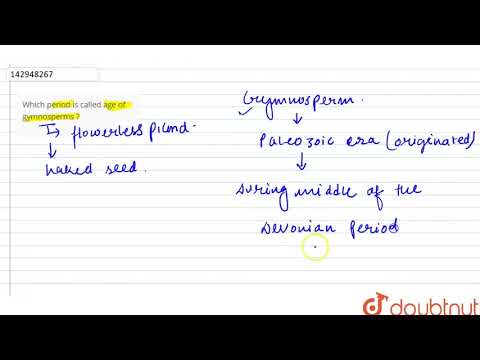 142948267
Which period is called age of
gymnosperms ?
flowerless plant.
naked seed.
Gymnosperm.
Paleozoic era (originated)
during middle of the
Devonian Period
doubtnut